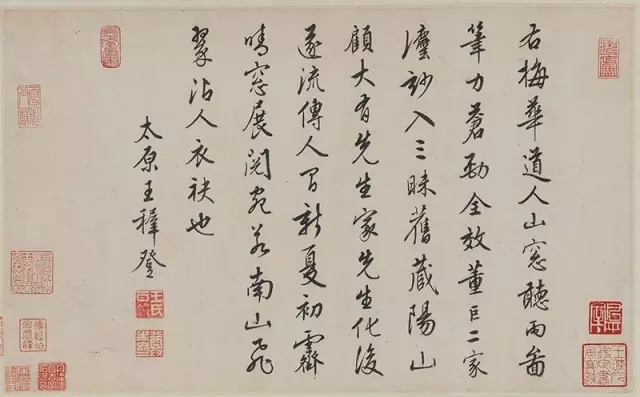 右梅華道人山窓聽雨啚
筆力蒼勁全效董巨二家
灋玅入三昧舊藏陽山
顧大有先生家先生化後
遂流傳人間新夏初霽
晴窓展閱宛若南山飛
翠沾人衣袂也
太原王穉登